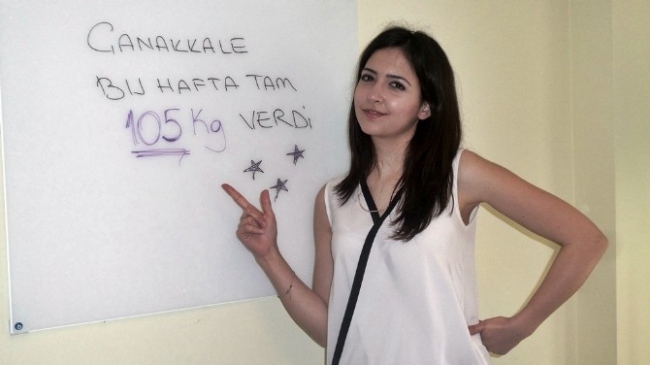 ÇANAKKALE
BU HAFTA TAM
105 Kg VERDİ